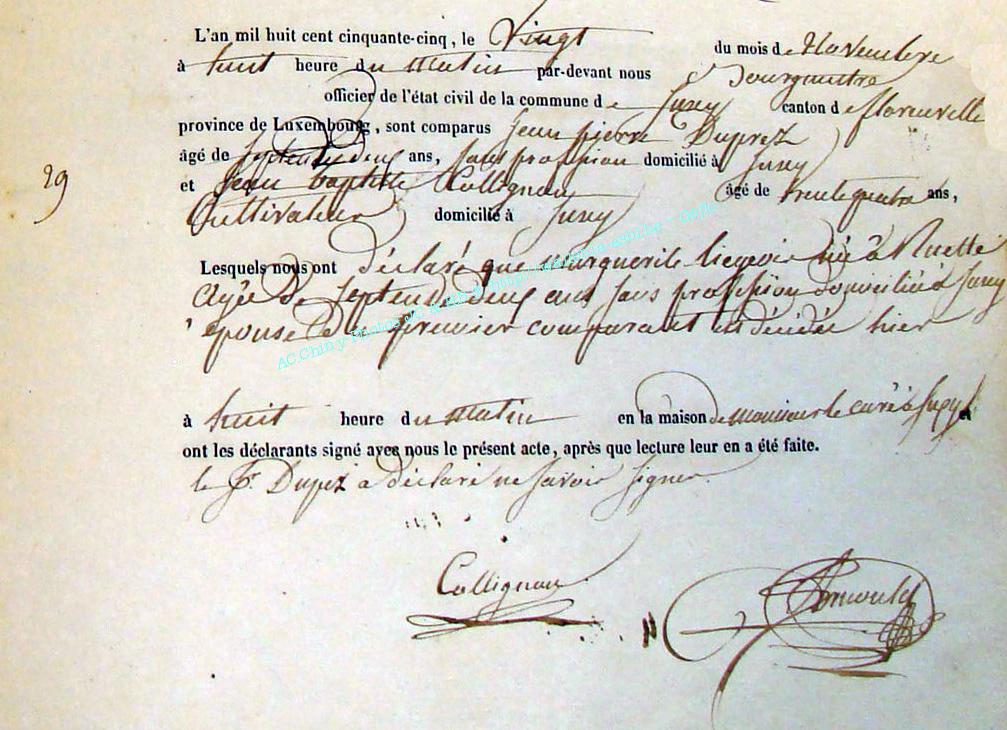 L'an mil huit cent cinquante-cinq, le Vingt du mois de Novembre
à huit heure du matin par-devant nous Bourgmestre
officier de l'état civil de la commune de Jusey canton de florenville
province de Luxembourg, sont comparus Jean pierre Duprez
âgé de septende deux ans, sans profession domicilié à Jusey
29
et Jean baptiste Collignon âgé de trente quatre ans,
Cultivateur domicilié à Jusey
Lesquels nous ont déclaré que Marguerite liegeois née à Ruette
agée de septende deux ans sans profession domiciliée à Jusey
épouse de premier comparant est décédée hier
AC.Chiny
à huit heure du matin en la maison de monsieur le curé à Jusey et
ont les déclarants signé avec nous le présent acte, après que lecture leur en a été faite.
le Sr. Duprez a déclaré ne savoir signer.
Collignon